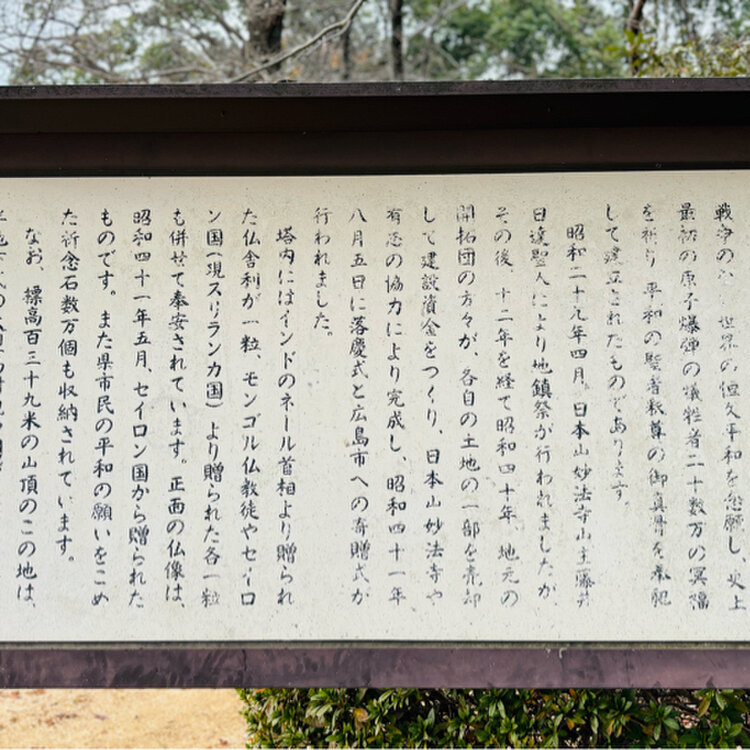 世界の恒久平和を念願し、史上
最初の原子爆弾の犠牲者二十数万の冥福
を祈り、平和の聖者釈尊の御真骨を奉祀
して建立されたものであります。
昭和二十九年四月、日本山妙法寺山主藤井
日達聖人により地鎮祭が行われましたが、
その後、十二年を経て昭和四十年、地元の
開拓団の方々が、各自の土地の一部を売却
して建設資金をつくり、日本山妙法寺や
有志の協力により完成し、昭和四十一年
八月五日に落慶式と広島市への寄贈式が
行われました。
塔内にはインドのネール首相より贈られ
た仏舎利が一粒、モンゴル仏教徒やセイロ
ン国(現スリランカ国)より贈られた各一粒
も併せて奉安されています。正面の仏像は、
昭和四十一年五月、セイロン国から贈られた
ものです。また県市民の平和の願いをこめ
た祈念石数万個も収納されています。
なお、標高百三十九米の山頂のこの地は、